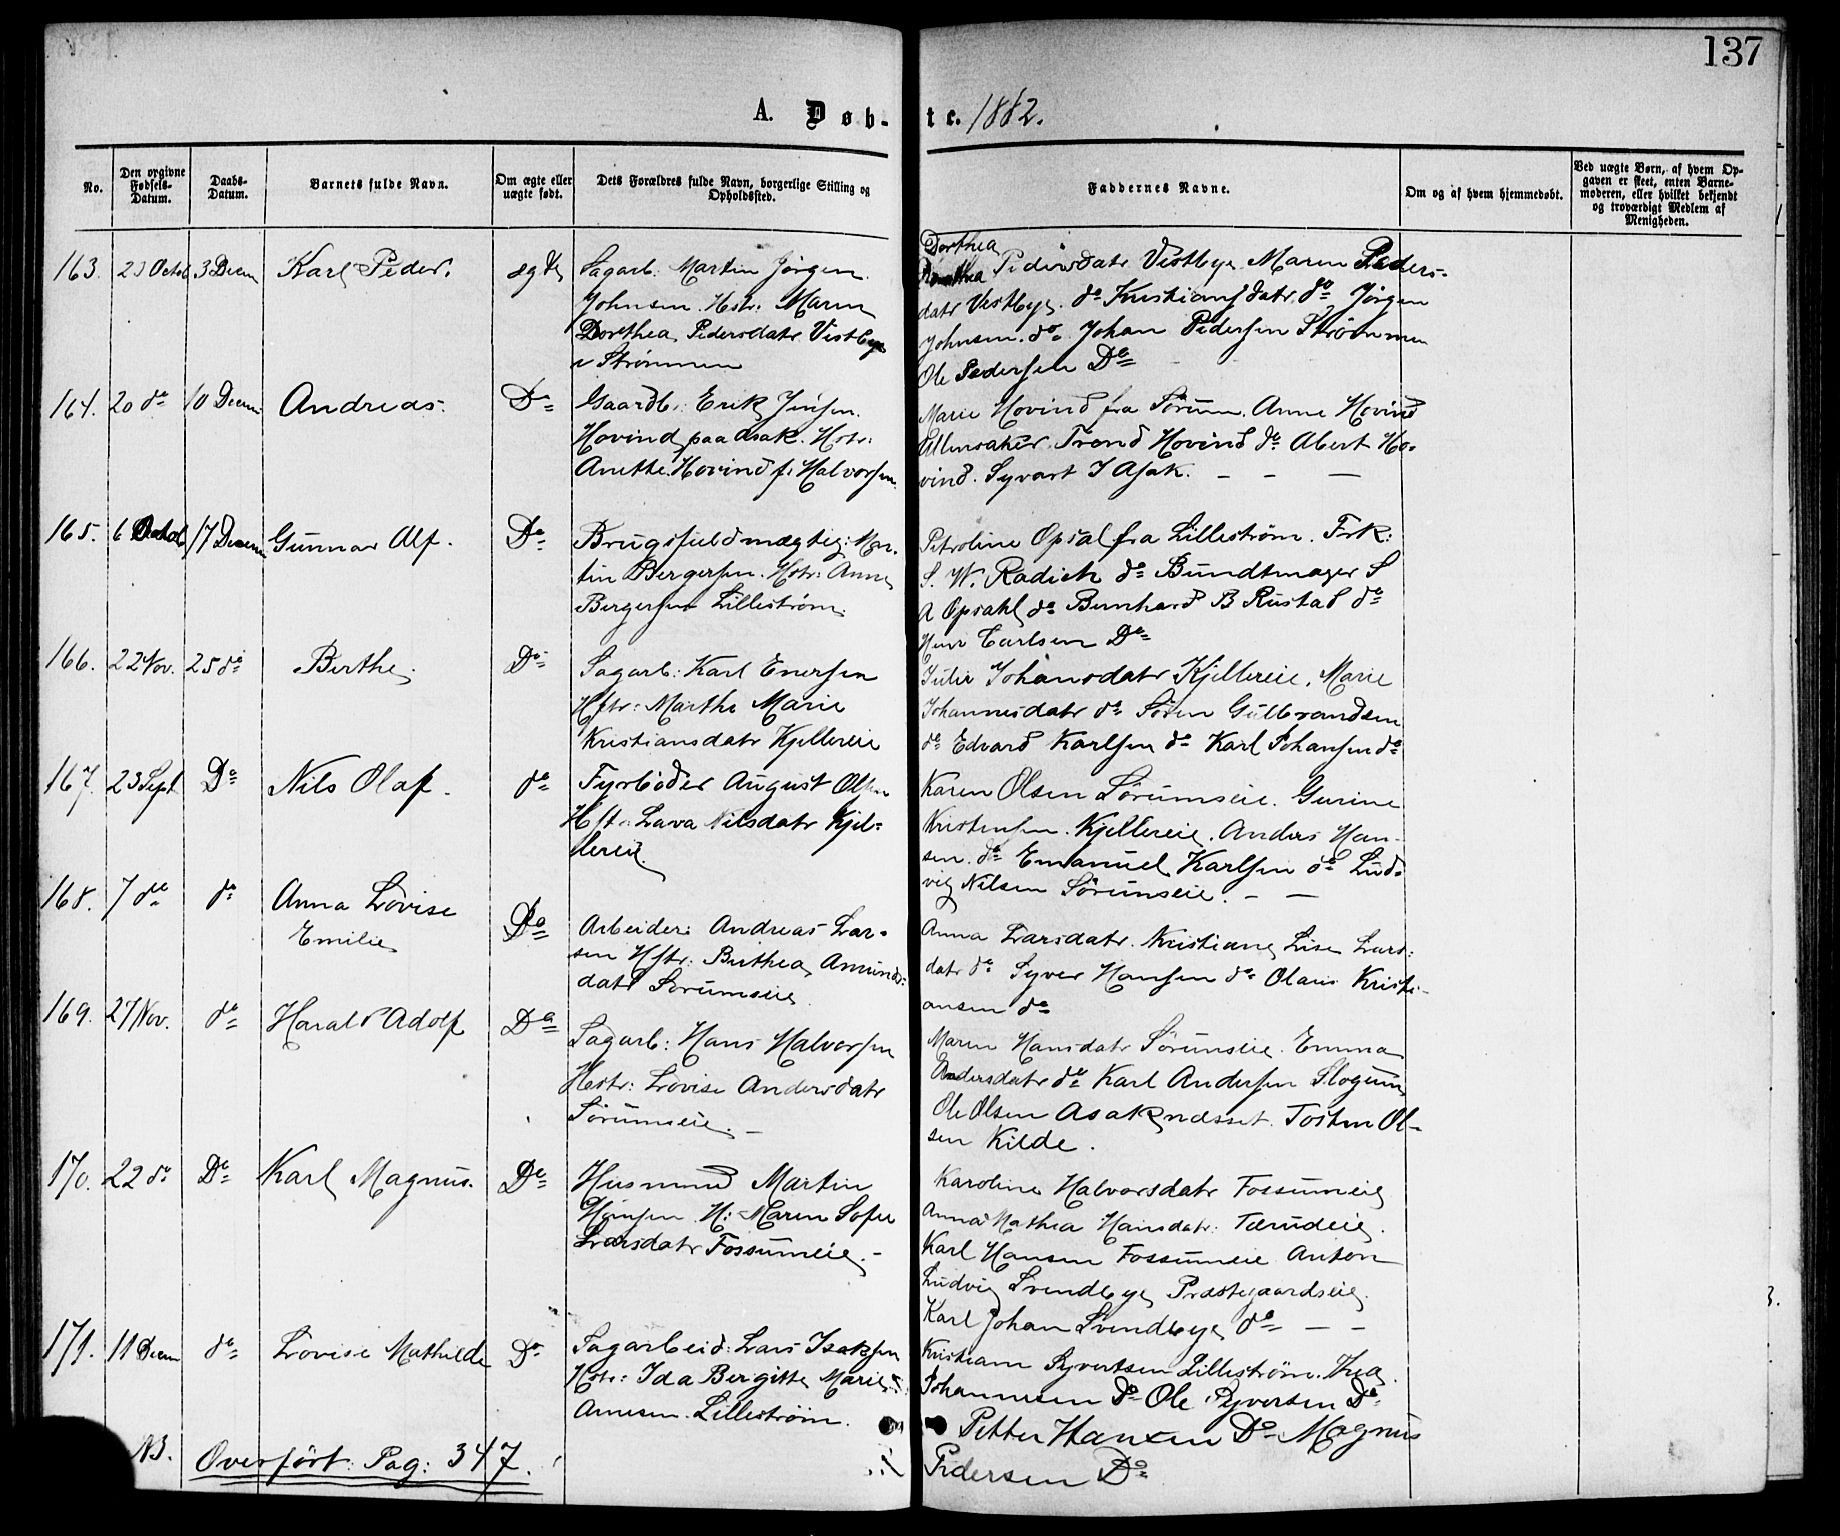 137
A. Døb-
te. 1882.
No.
Den opgivne Fødsels-Datum.
Daabs-Datum.
Barnets fulde Navn.
Om ægte eller uægte født.
Dets Forældres fulde Navn, borgerlige Stilling og Opholdssted.
Faddernes Navne.
Om og af hvem hjemmedøbt.
Ved uægte Børn, af hvem Op-
gaven er skeet, enten Barne-
moderen, eller hvilket bekjendt
og troværdigt Medlem af
Menigheden.
163. 23 Octob 3 Decem Karl Peder. ægte
Sagarb: Martin Jørgen
Johnsen. Hstr: Maren
Dorthea Pedersdatr Vestbye
v Strømmen
Dorthea
Pedersdatr Vestbye Maren Peders-
datr Vestbye. do Kristiansdatr do Jørgen
Johnsen. do Johan Pedersen Strømmen
Ole Pedersen Do
164. 20 do 10 Decem Andreas. Do
Gaardb: Erik Jensen
Hovind paa Asak. Hstr:
Anethe Hovind f. Halvorsen
Marie Hovind fra Sørum. Anne Hovind
Ullensaker. Trond Hovind do Abert Ho-
vind. Syvart I Asak. – – –
165. 6 Octob 17 Decem Gunnar Alf. Do
Brugsfuldmægtig: Mar-
tin Bergersen. Hstr: Anna
Bergersen Lillestrøm.
Petroline Opsal fra Lillestrøm. Frk:
S. W. Radich do Bundtmager S
A Opsahl do Bernhard B Rustad do
Henr Carlsen Do
166. 22 Nov. 25 do Berthe. Do
Sagarb: Karl Enersen
Hstr: Marthe Marie
Kristiansdatr Kjellereie
Julie Johansdatr Kjellereie. Marie
Johannesdatr do Søren Gulbrandsen
do Edvard Karlsen do Karl Johansen do
167. 23 Sept Do Nils Olaf. do
Fyrbøder August Olsen
Hst: Lava Nilsdatr Kjel-
lereie.
Karen Olsen Sørumseie. Gurine
Kristensen. Kjellereie. Anders Han-
sen. do Emanuel Karlsen do Lud-
vig Nilsen Sørumseie. – –
168. 7 do do Anna Lovise
Emilie Do
Arbeider: Andreas Lar-
sen Hstr: Berthea Amunds-
datr Sørumseie
Anna Larsdatr. Kristiane Lise Lars-
datr do Syver Hansen do Olaus Kristi-
ansen do
169. 27 Nov. do Harald Adolf Do
Sagarb: Hans Halvorsen
Hstr: Lovise Andersdatr
Sørumseie. –
Maren Hansdatr Sørumseie. Emma
Andersdatr do Karl Andersen Slogum
Ole Olsen Asaknæsset Tosten Ol-
sen Kilde.
170. 22 do Do Karl Magnus. Do
Husmand Martin
Hansen H: Maren Sofie
Larsdatr Fossumeie. –
Karoline Halvorsdatr Fossumeie
Anna Mathea Hansdatr. Tærudeie.
Karl Hansen Fossumeie Anton
Ludvig Svendbye Præstegaardseie.
Karl Johan Svendbye do – –
171. 11 Decem do Lovise Mathilde Do
Sagarbeid: Lars Isaksen
Hstr: Ida Bergitte Marie
Arnesen. Lillestrøm.
Kristiane Syvertsen Lillestrøm. Thea
Johannesen Do Ole Syversen Do
Petter Hansen Do Magnus
Pedersen Do
NB. Overført: Pag: 347.